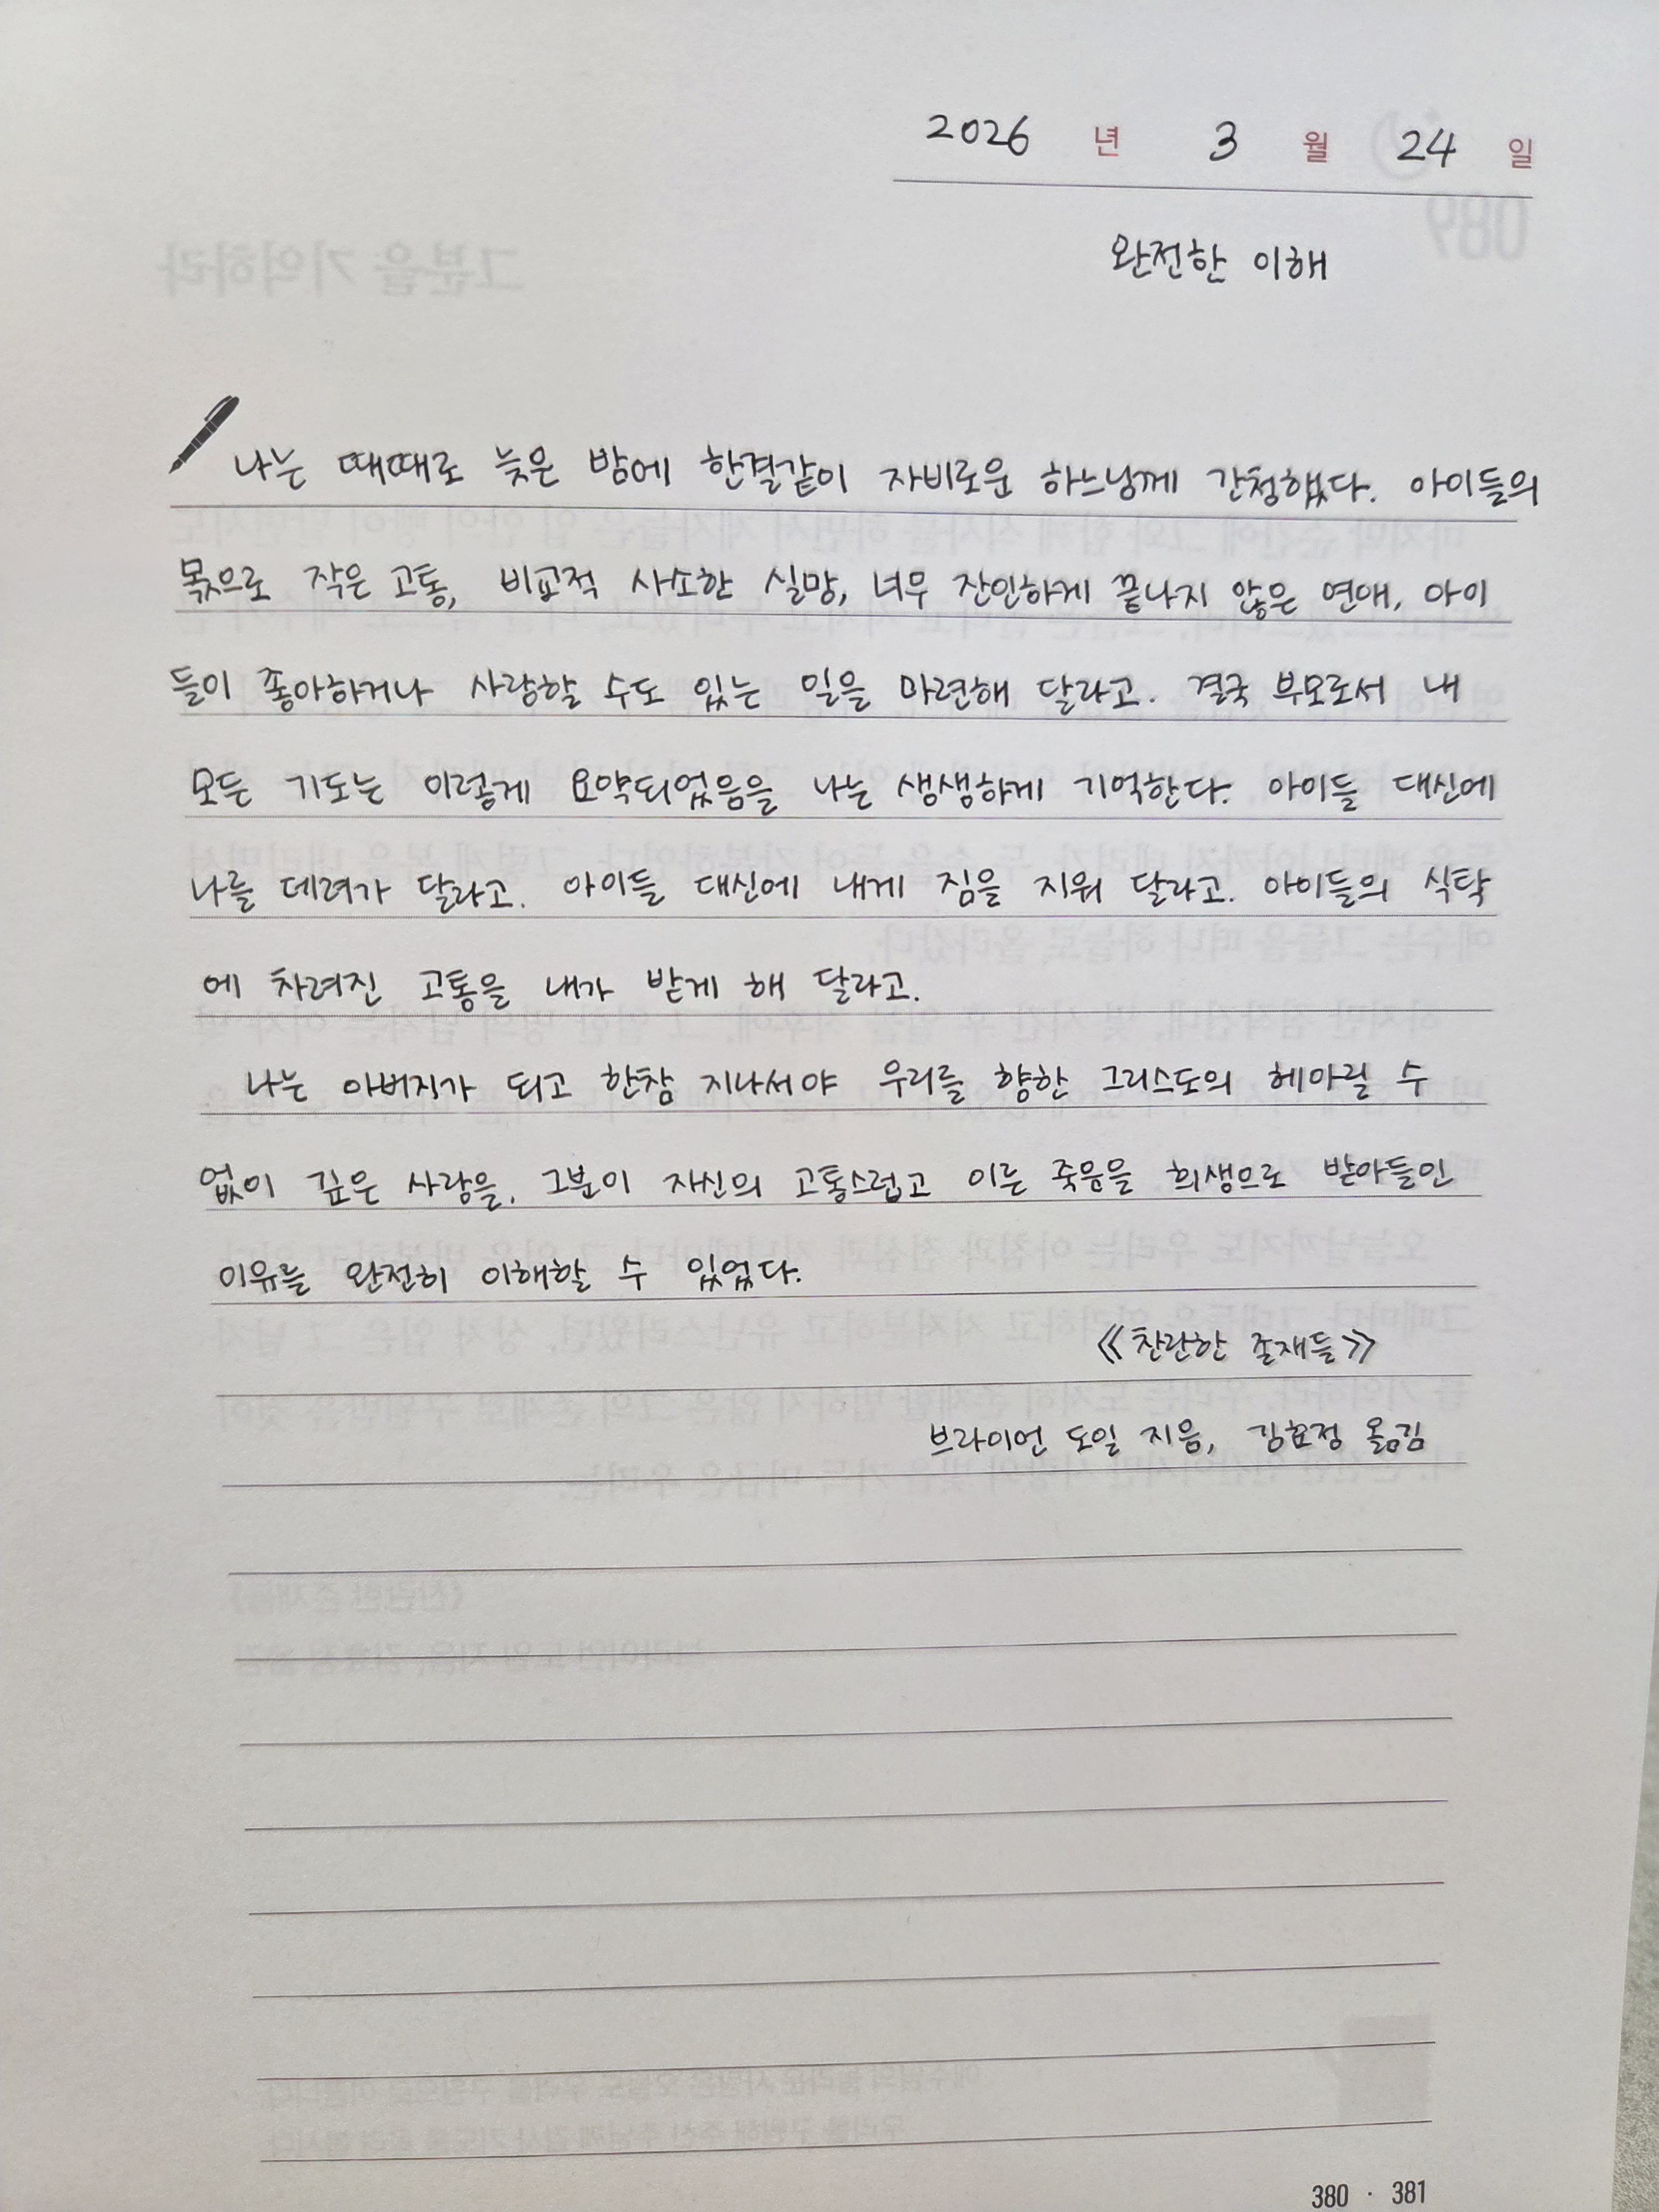 2026 년 3 월 24 일
완전한 이해
나는 때때로 늦은 밤에 한결같이 자비로운 하느님께 간청했다. 아이들의
몫으로 작은 고통, 비교적 사소한 실망, 너무 잔인하게 끝나지 않은 연애, 아이
들이 좋아하거나 사랑할 수도 있는 일을 마련해 달라고. 결국 부모로서 내
모든 기도는 이렇게 요약되었음을 나는 생생하게 기억한다. 아이들 대신에
나를 데려가 달라고. 아이들 대신에 내게 짐을 지워 달라고. 아이들의 식탁
에 차려진 고통을 내가 받게 해 달라고.
나는 아버지가 되고 한참 지나서야 우리를 향한 그리스도의 헤아릴 수
없이 깊은 사랑을, 그분이 자신의 고통스럽고 이른 죽음을 희생으로 받아들인
이유를 완전히 이해할 수 있었다.
《찬란한 존재들》
브라이언 도일 지음, 김효정 옮김
380 · 381